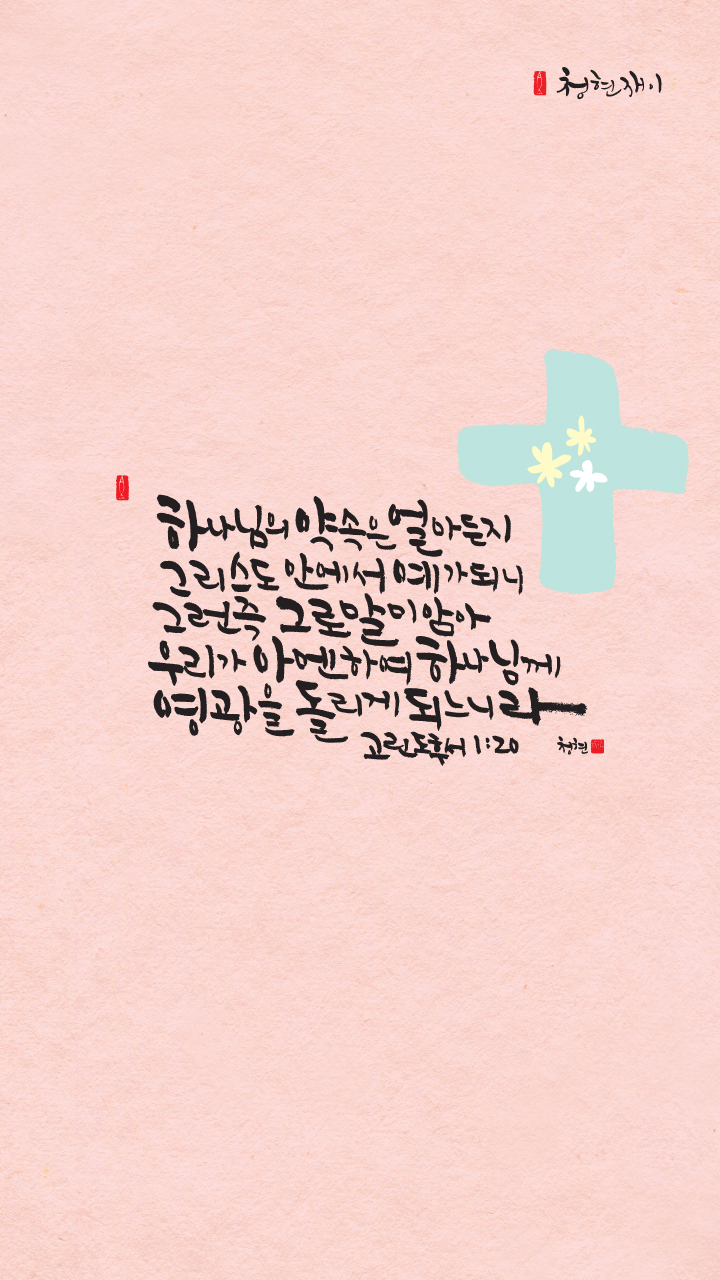 청현재이
하나님의 약속은 얼마든지
그리스도 안에서 예가되니
그런즉 그로말미암아
우리가 아멘하여 하나님께
영광을 돌리게 되느니라
고린도후서 1:20
청현